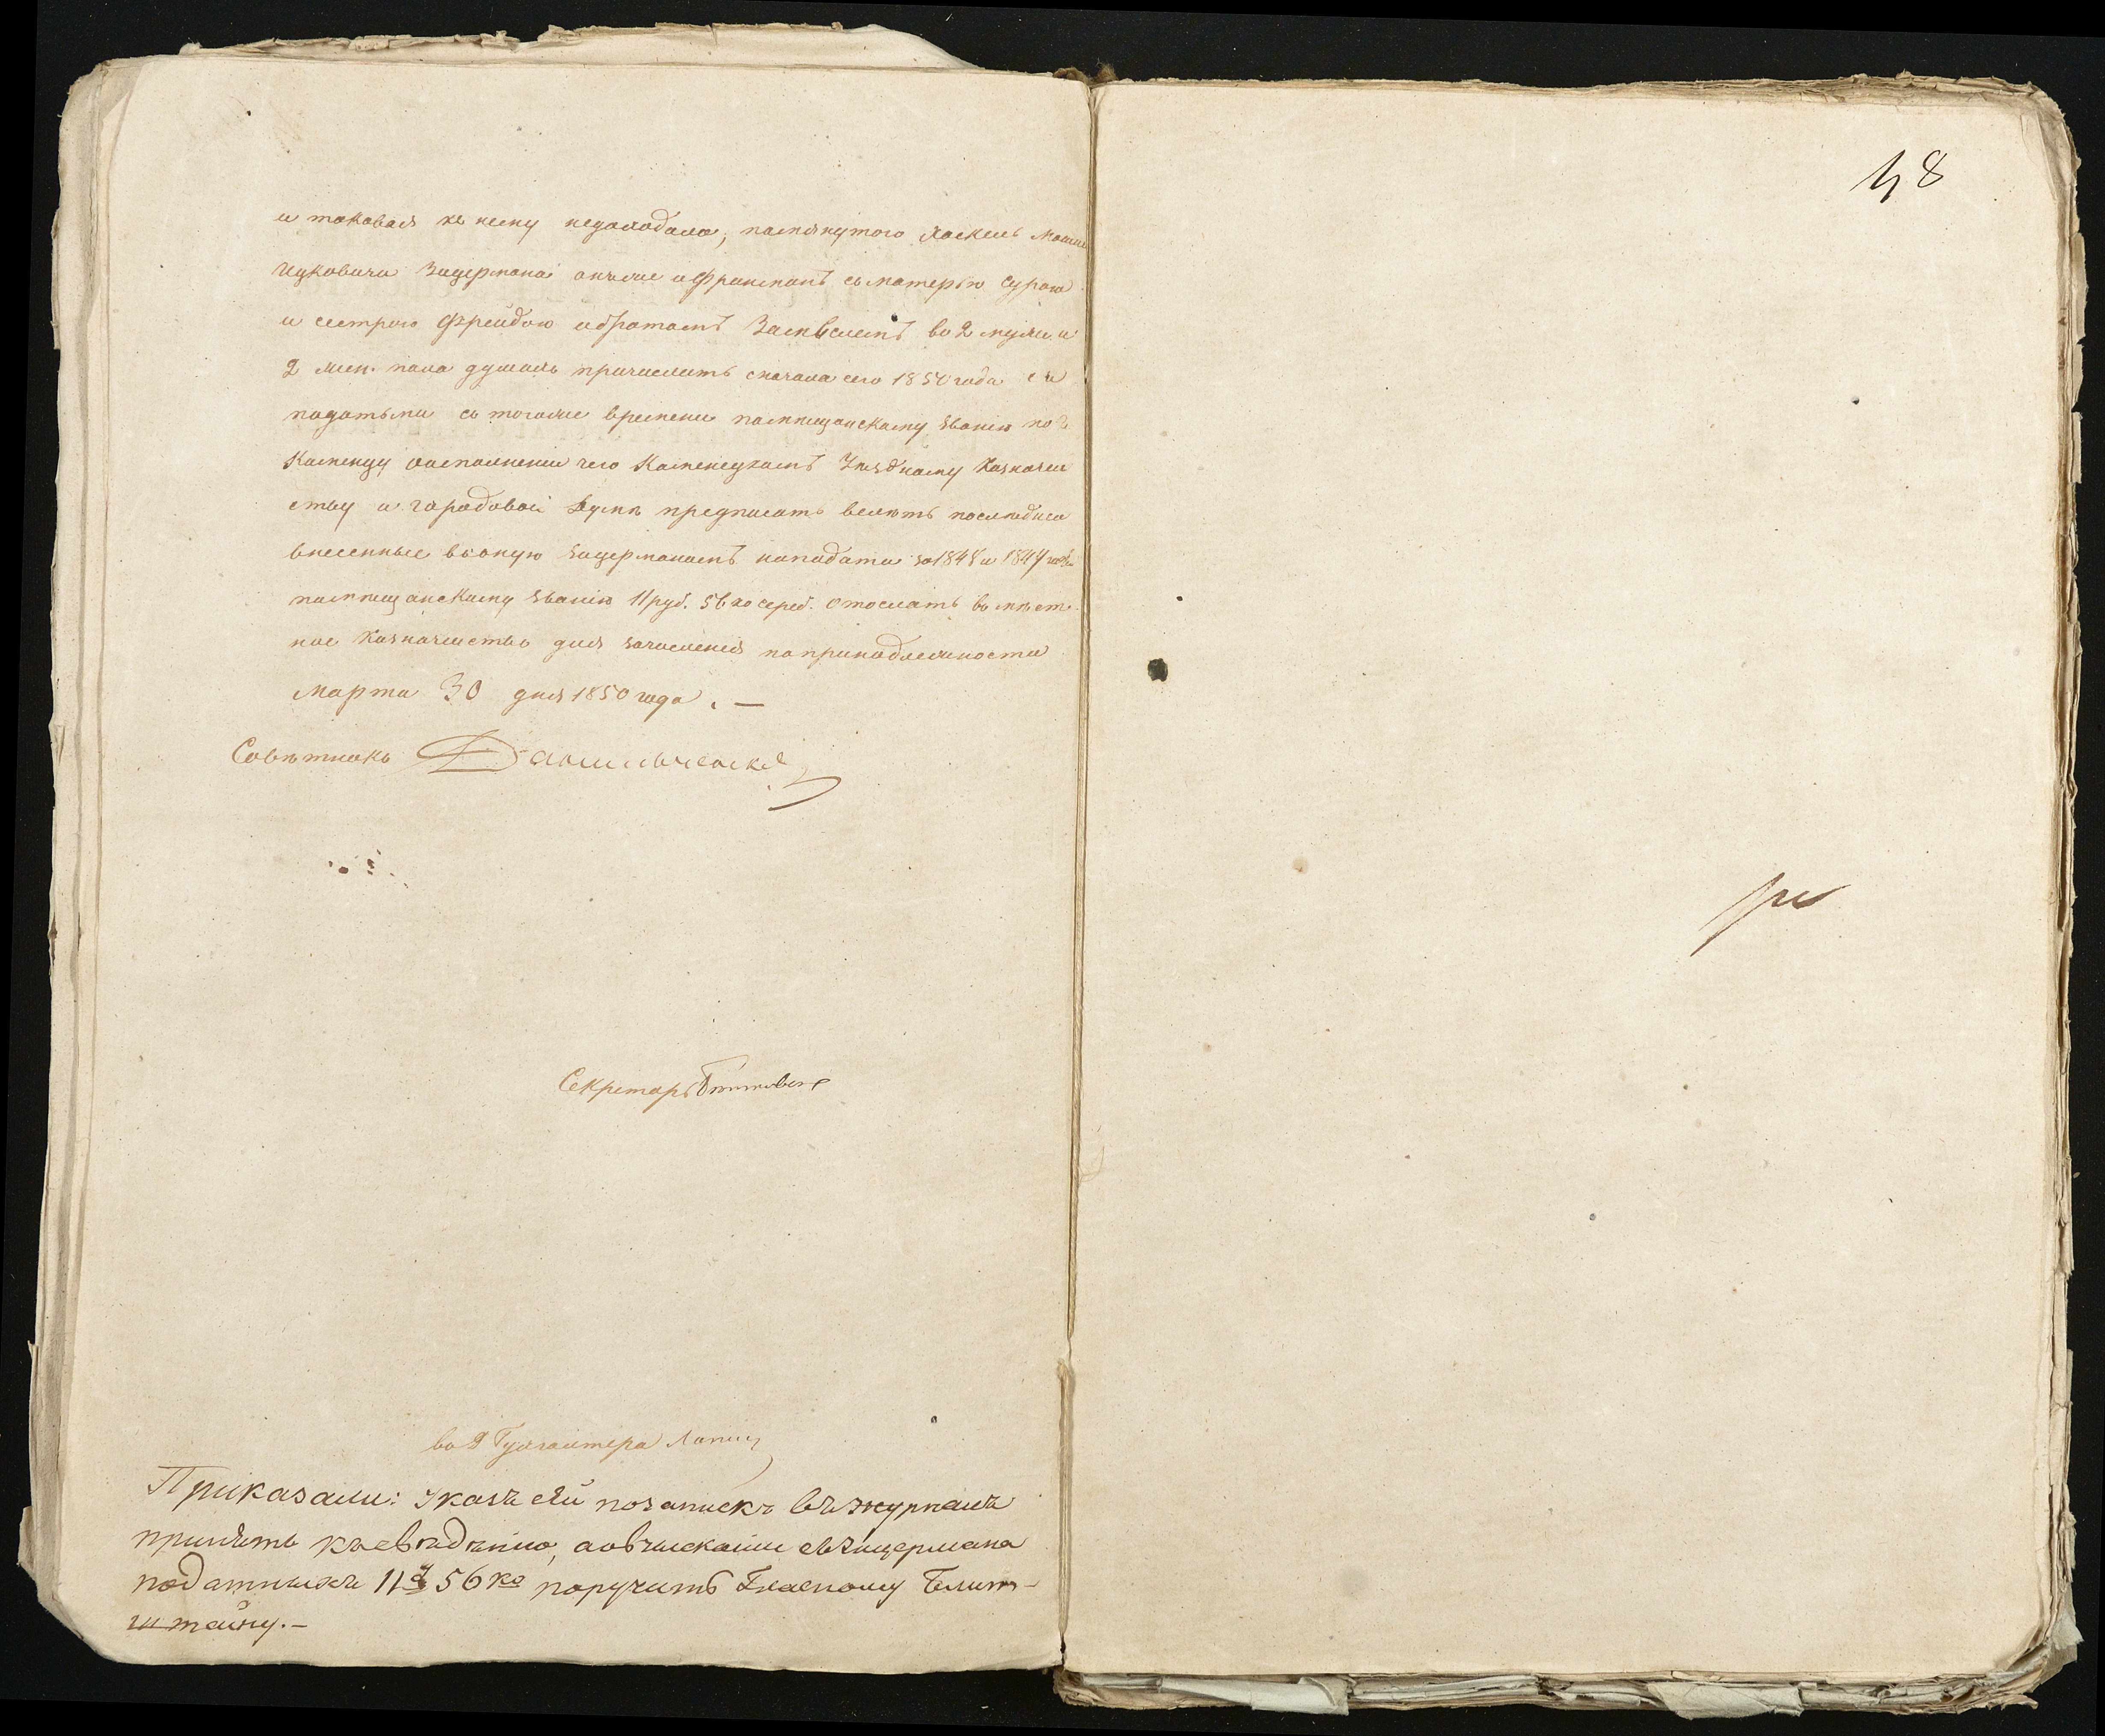 и таковая къ нему недоходила; помянутого Хаскель Мошко
Ицковича Зицермана онъже и Фроиманъ съ матерью Сурою
и сестрою Фрейдою и братомъ во 2 муж. и
2 жен. пола душахъ причислить сначала сего 1850 года съ
податьми съ тогоже времени помѣщанскому званію по г.
Каменцу о исполненіи чего Каменецкимъ Уѣздному Казначей
ству и городовой Думѣ предписать велѣть последней
внесенные въ оную Зицерманомъ на подати за 1848 и 1849 годы
помѣщанскому званію 11 руб. 56 ко сереб. отослать въ мѣст
ное Казначейство для зачисленія по принадлежности
Марта 30 дня 1850 года. —
Совѣтникъ
Секретарь
во д Бухгалтера
Приказали: Указъ сей позапискѣ въ журналъ
принять къ свѣдѣнію, а о взысканіи съ Зицермана
податныхъ 11 р 56 ко поручить Гласному Блит-
штейну. —
48